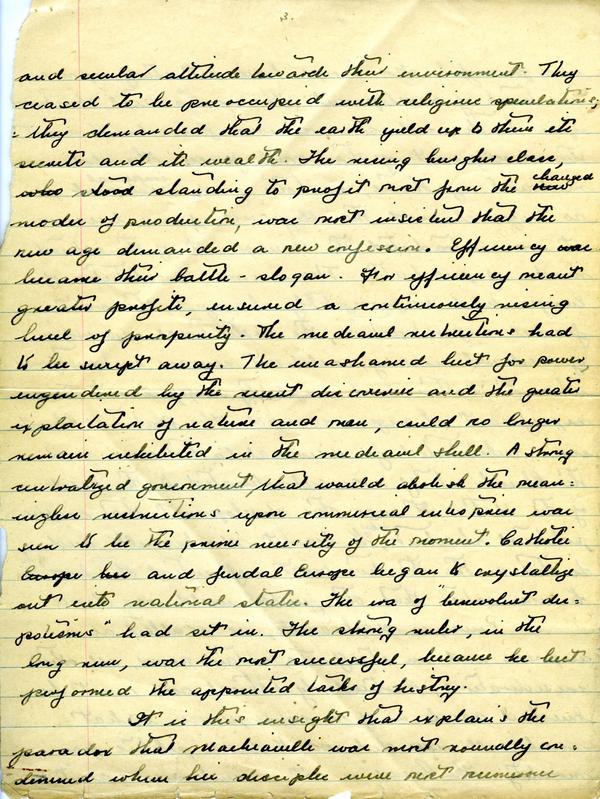 3.
and secular attitude towards their environment. They
ceased to be preoccupied with religious speculations;
they demanded that the earth yield up to them its
secrets and its wealth. The rising burgher class,
who stood standing to profit most from the new changed
modes of production, was most insistent that the
new age demanded a new confession. Efficiency was
became their battle-slogan. For efficiency meant
greater profits, insured a continuously rising
level of prosperity. The mediaevel restrictions had
to be swept away. The unashamed lust for power,
engendered by the recent discoveries and the greater
exploitation of nature and man, could no longer
remain inhibited in the mediaevel shell. A strong
centralized government, that would abolish the mean=
ingless restrictions upon commercial enterprise was
seen to be the prime necessity of the moment. Catholic
Europe and feudal Europe began to crystallize
out into national states. The era of "benevolent des=
potisms" had set in. The strong ruler, in the
long run, was the most successful, because he best
performed the appointed tasks of history.
It is this insight that explains the
paradox that Machiavelli was most roundly con=
demned when his disciples were most numerous